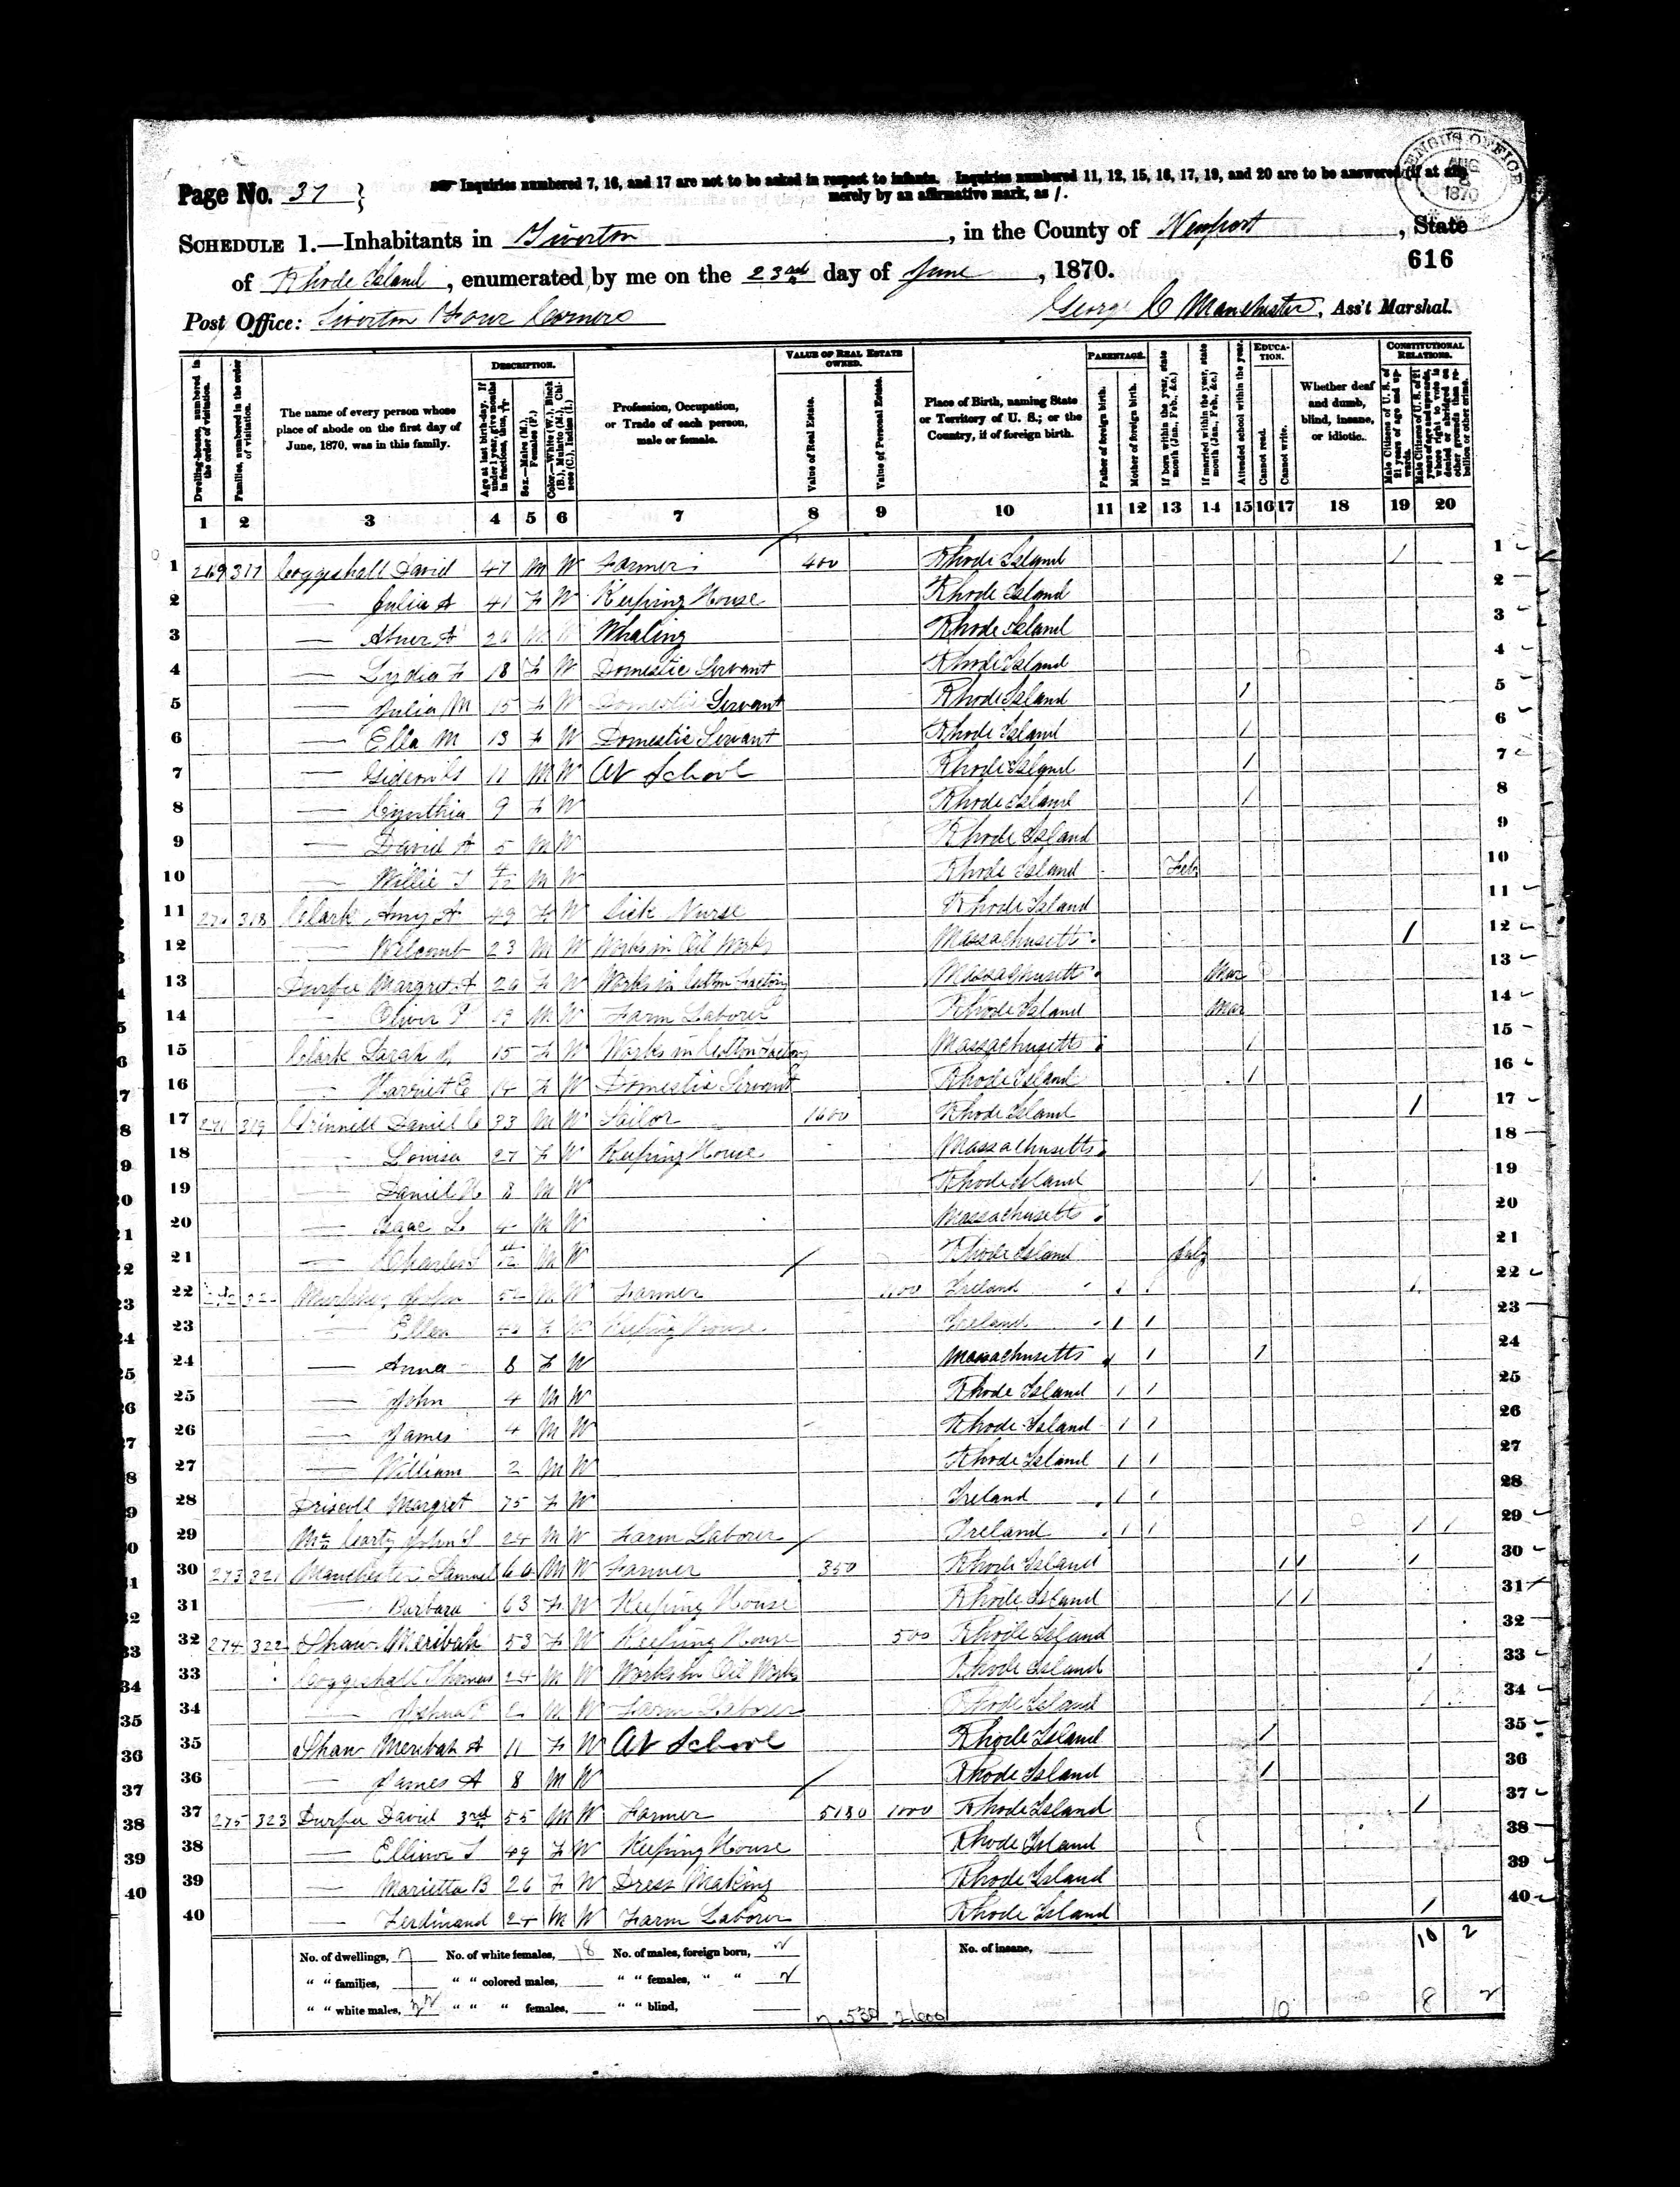 Page No. 37
Inquiries numbered 7, 16, and 17 are not to be asked in respect to infants. Inquiries numbered 11, 12, 15, 16, 17, 19, and 20 are to be answered (if at all)
merely by an affirmative mark, as /.
CENSUS OFFICE AUG 1870
SCHEDULE 1.—Inhabitants in Tiverton, in the County of Newport, State
616
of Rhode Island, enumerated by me on the 23rd day of June, 1870.
Post Office: Tiverton Four Corners
George C Manchester, Ass't Marshal.
Dwelling-houses, numbered in the order of visitation.
Families, numbered in the order of visitation.
The name of every person whose place of abode on the first day of June, 1870, was in this family.
DESCRIPTION.
Age at last birth-day. If under 1 year, give months in fractions, thus,
Sex.—Males (M.), Females (F.)
Color.—White (W.), Black (B.), Mulatto (M.), Chinese (C.), Indian (I.)
Profession, Occupation, or Trade of each person, male or female.
VALUE OF REAL ESTATE OWNED.
Value of Real Estate.
Value of Personal Estate.
Place of Birth, naming State or Territory of U. S.; or the Country, if of foreign birth.
PARENTAGE.
Father of foreign birth.
Mother of foreign birth.
If born within the year, state month (Jan., Feb., &c.)
If married within the year, state month (Jan., Feb., &c.)
Attended school within the year.
EDUCATION.
Cannot read.
Cannot write.
Whether deaf and dumb, blind, insane, or idiotic.
CONSTITUTIONAL RELATIONS.
Male Citizens of U. S. of 21 years of age and upwards.
Male Citizens of U. S. of 21 years of age and upwards, whose right to vote is denied or abridged on other grounds than rebellion or other crime.
1 2 3 4 5 6 7 8 9 10 11 12 13 14 15 16 17 18 19 20
1 269 317 Coggeshall David 47 M W Farmer 400 Rhode Island / 1
2 — Julia A 41 F W Keeping House Rhode Island 2
3 — Abner A 20 M W Whaling Rhode Island 3
4 — Lydia F 18 F W Domestic Servant Rhode Island 4
5 — Julia M 15 F W Domestic Servant Rhode Island / 5
6 — Ella M 13 F W Domestic Servant Rhode Island / 6
7 — Gideon 11 M W At School Rhode Island / 7
8 — Cynthia 9 F W Rhode Island / 8
9 — David A 5 M W Rhode Island 9
10 — Willie T 4/12 M W Rhode Island Feb 10
11 270 318 Clark Amy A 49 F W Sick Nurse Rhode Island 11
12 — Welcomb 23 M W Works in Oil Works Massachusetts / 12
13 Durfee Margret A 20 F W Works in Cotton Factory Massachusetts Mar 13
14 — Oliver P 19 M W Farm Laborer Rhode Island Mar 14
15 Clark Sarah 15 F W Works in Cotton Factory Massachusetts / 15
16 — Harriet E 14 F W Domestic Servant Rhode Island / 16
17 271 319 Grinnell Daniel C 33 M W Sailor 1600 Rhode Island / 17
18 — Louisa 27 F W Keeping House Massachusetts 18
19 — Daniel H 8 M W Rhode Island / 19
20 — Isaac L 4 M W Massachusetts 20
21 — Charles S 11/12 M W Rhode Island July 21
22 272 320 Murphy John 52 M W Farmer Ireland / / / 22
23 — Ellen 40 F W Keeping House Ireland / / 23
24 — Anna 8 F W Massachusetts / / / 24
25 — John 4 M W Rhode Island / / 25
26 — James 4 M W Rhode Island / / 26
27 — William 2 M W Rhode Island / / 27
28 Driscoll Margret 75 F W Ireland / / 28
29 Mc Carty John S 24 M W Farm Laborer Ireland / / / / 29
30 273 321 Manchester Samuel 66 M W Farmer 350 Rhode Island / / / 30
31 — Barbara 63 F W Keeping House Rhode Island / / 31
32 274 322 Shaw Meribah 53 F W Keeping House 500 Rhode Island 32
33 Coggeshall Thomas 24 M W Works in Oil Works Rhode Island / 33
34 — Joshua M W Farm Laborer Rhode Island / 34
35 Shaw Meribah A 11 F W At School Rhode Island / 35
36 — James A 8 M W Rhode Island / 36
37 275 323 Durfee David 3rd 55 M W Farmer 5180 1000 Rhode Island / 37
38 — Ellinor S 49 F W Keeping House Rhode Island 38
39 — Marietta B 26 F W Dress Making Rhode Island 39
40 — Ferdinand 24 M W Farm Laborer Rhode Island / 40
No. of dwellings, 7 No. of white females, 18 No. of males, foreign born, 2 No. of insane, 10 2
" " families, " " colored males, " " females, " " 2
" " white males, 22 " " " females, " " blind, 7,530 2600 10 8 2